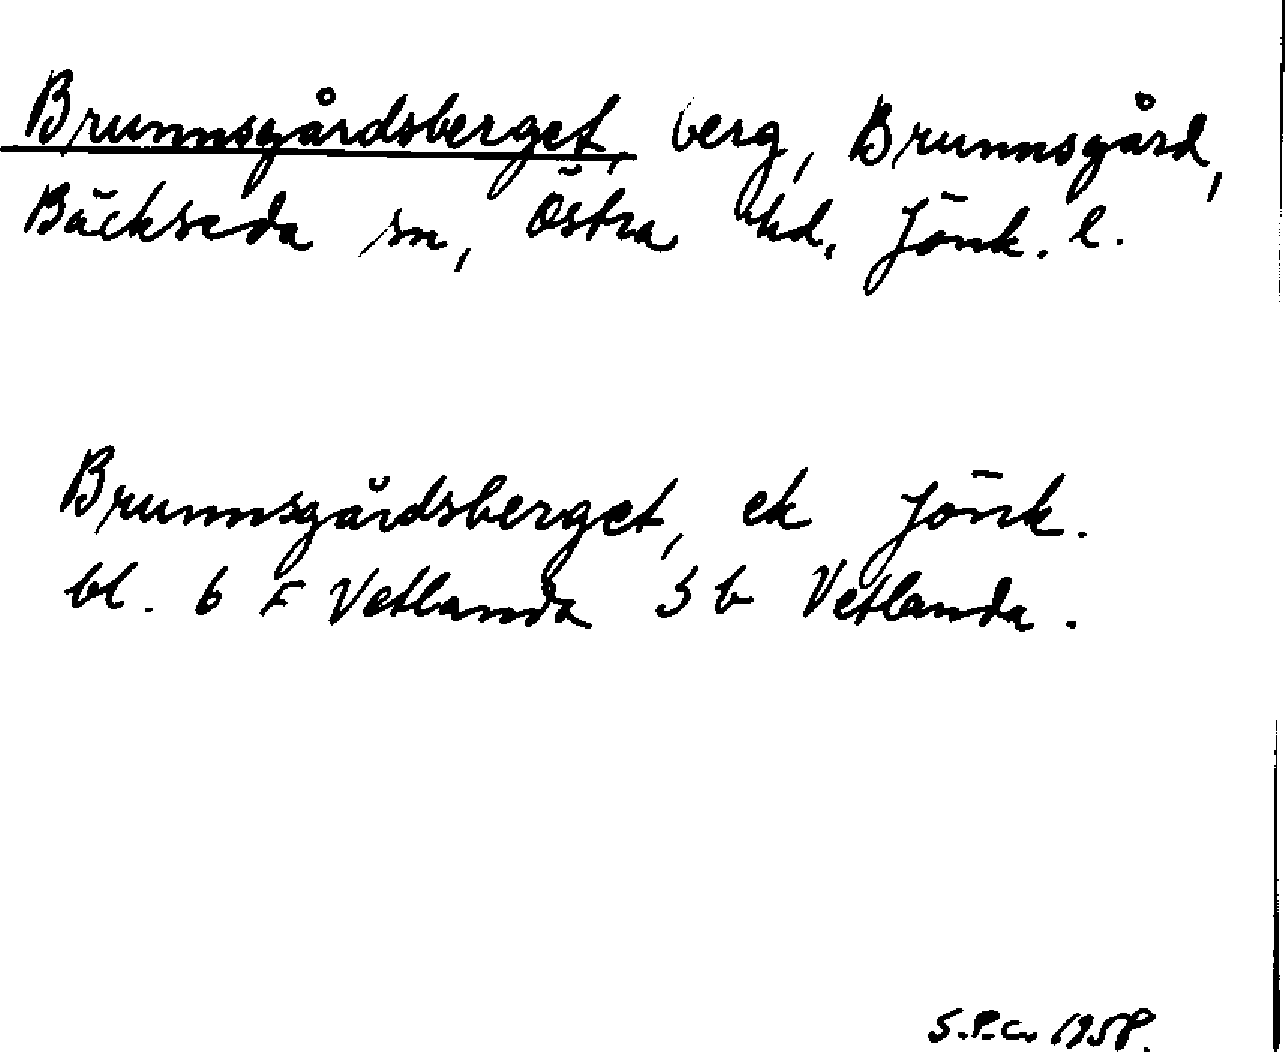 Brunnsgårdsberget, berg, Brunnsgård,
Bäckseda sn, Östra hd, Jönk. l.
Brunnsgårdsberget, ek Jönk.
bl. 6 F Vetlanda 5 b Vetlanda.
S.P.C. 1958.